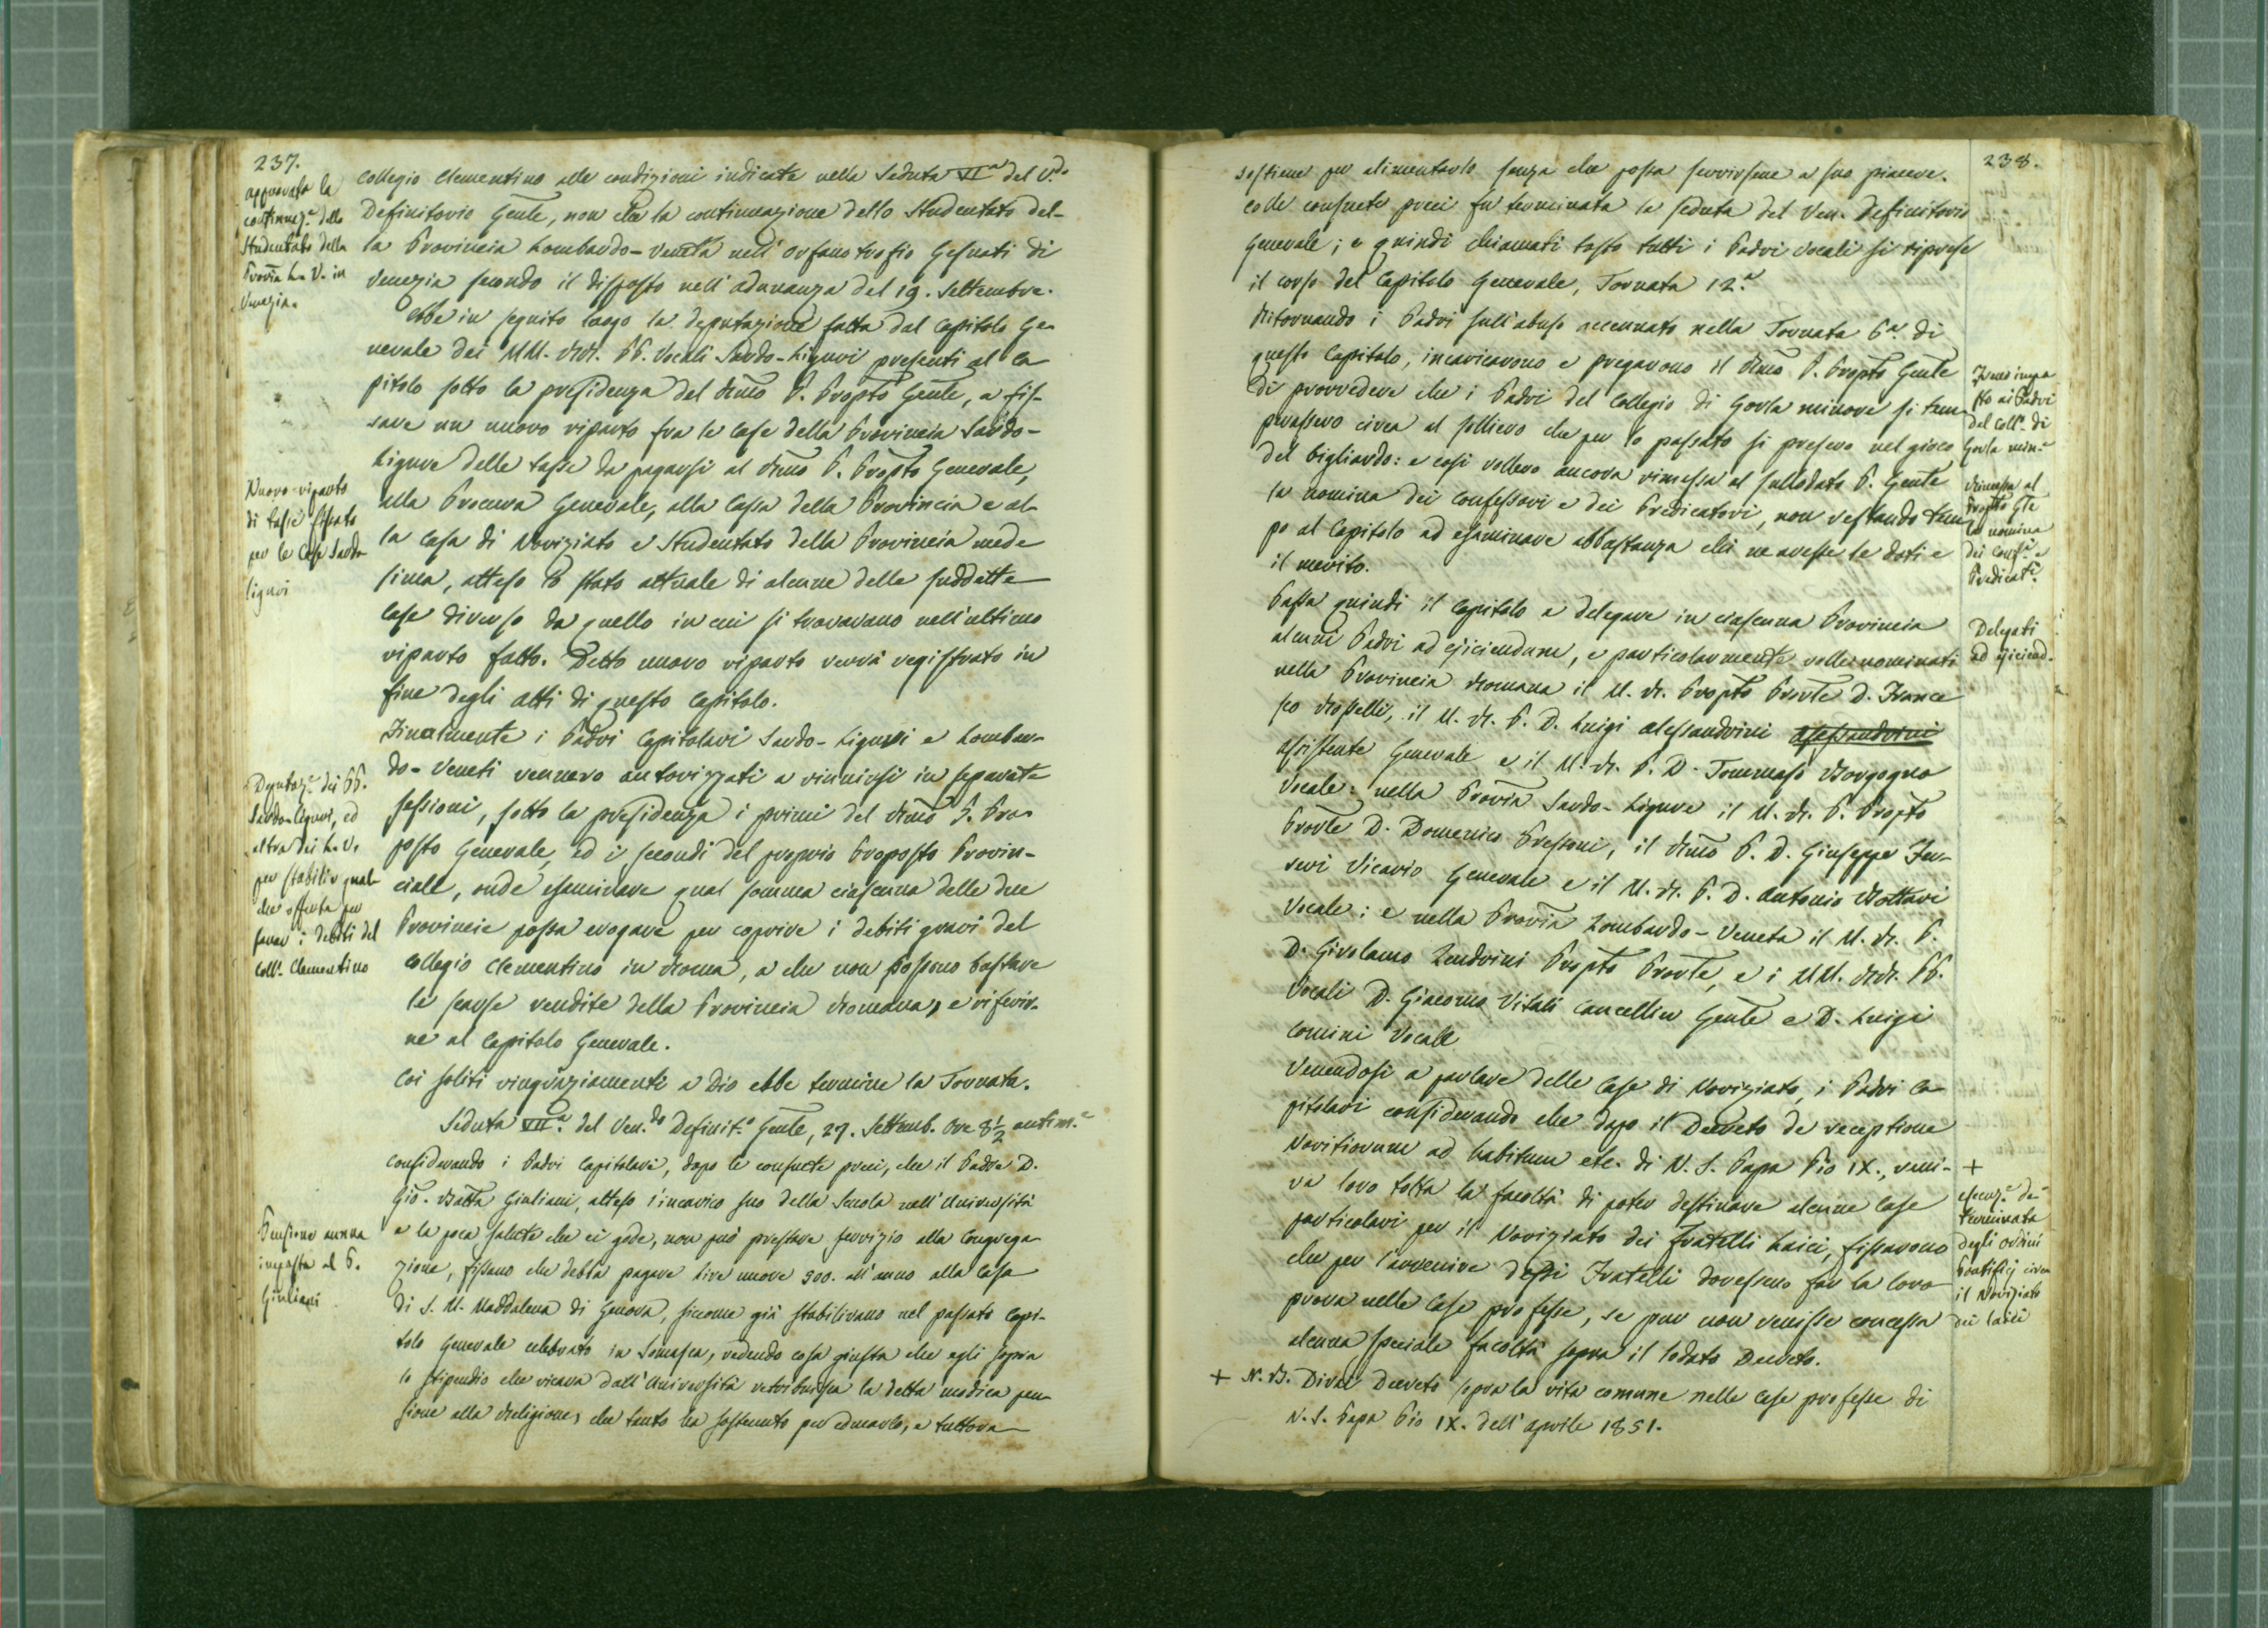 237.
approvata la
continuaz.e dello
Studentato della
Provīa L.-V. in
Venezia.
Collegio Clementino alle condizioni indicate nella Seduta VI.a del V.do
Definitorio Gen̄le, non che la continuazione dello Studentato del-
la Provincia Lombardo-Veneta nell'Orfanotrofio Gesuati di
Venezia secondo il disposto nell'adunanza del 19. Settembre.
Ebbe in seguito luogo la deputazione fatta dal Capitolo Ge-
nerale dei MM. RR. PP. Vocali Sardo-Liguri presenti al Ca
pitolo sotto la presidenza del Rīmo P. Propto Gen̄le, a fis-
sare un nuovo riparto fra le Case della Provincia Sardo-
Ligure delle tasse da pagarsi al Rīmo P. Propto Generale,
alla Procura Generale, alla Cassa della Provincia e al-
la Casa di Noviziato e Studentato della Provincia mede
sima, atteso lo stato attuale di alcune delle suddette
Case diverso da quello in cui si trovavano nell'ultimo
riparto fatto. Detto nuovo riparto verrà registrato in
fine degli atti di questo Capitolo.
Nuovo riparto
di tasse fissato
per le Case Sardo
liguri
Finalmente i Padri Capitolari Sardo-Liguri e Lombar-
do-Veneti vennero autorizzati a riunirsi in separate
sessioni, sotto la presidenza i primi del Rīmo P. Pro-
posto Generale, ed i secondi del proprio Proposto Provin-
ciale, onde esaminare qual somma ciascuna delle due
Provincie possa erogare per coprire i debiti gravi del
Collegio Clementino in Roma, a che non possono bastare
le scarse rendite della Provincia Romana, e riferir-
ne al Capitolo Generale.
Deputaz.e dei PP.
Sardo-liguri, ed
altra dei L.-V.
per stabilir qual-
che offerta per
sanar i debiti del
Coll.o Clementino
Coi soliti ringraziamenti a Dio ebbe termine la Tornata.
Seduta VII.a del Ven.do Definit.o Gen̄le, 27. Settemb. Ore 8 1/2 antim.e
Considerando i Padri Capitolari, dopo le consuete preci, che il Padre D.
Gio. Batta Giuliani, atteso l'incarico suo della Scuola nell'Università
e la poca salute che ei gode, non può prestare servizio alla Congrega
zione, fissano che debba pagare lire nuove 500. all'anno alla Casa
di S. M. Maddalena di Genova, siccome già stabilirano nel passato Capi-
tolo Generale celebrato in Somasca, vedendo cosa giusta che egli sopra
lo stipendio che ricava dall'Università retribuisca la detta modica pen
sione alla Religione, che tanto ha sostenuto per educarlo, e tuttora
Pensione annua
imposta al P.
Giuliani
238.
sostiene per alimentarlo senza che possa servirsene a suo piacere.
Colle consuete preci fu terminata la seduta del Ven. Definitorio
Generale; e quindi chiamati tosto tutti i Padri Vocali si riprese
il corso del Capitolo Generale, Tornata 12.a
Ritornando i Padri sull'abuso accennato nella Tornata 6.a di
questo Capitolo, incaricarono e pregarono il Rīmo P. Propto Gen̄le
di provvedere che i Padri del Collegio di Gorla minore si tem
perassero circa al sollievo che per lo passato si presero nel gioco
del bigliardo: e così vollero ancora rimessa al sullodato P. Gen̄le
la nomina dei Confessori e dei Predicatori, non restando tem
po al Capitolo ad esaminare abbastanza chi ne avesse le doti e
il merito.
Freno impo
sto ai Padri
del Coll.o di
Gorla min.e
Rimessa al
Propto Gle
la nomina
dei Conf.i e
Predicat.i
Passa quindi il Capitolo a delegare in ciascuna Provincia
alcuni Padri ad ejiciendum, e particolarmente volle nominati
nella Provincia Romana il M. R. Propto Provle D. France
sco Rosselli, il M. R. P. D. Luigi Alessandrini Alessandrini
Assistente Generale e il M. R. P. D. Tommaso Borgogno
Vocale: nella Provīa Sardo-Ligure il M. R. P. Propto
Provle D. Domenico Pressoni, il Rīmo P. D. Giuseppe Fer-
reri Vicario Generale e il M. R. P. D. Antonio Bottari
Vocale: e nella Provīa Lombardo-Veneta il M. R. P.
D. Girolamo Zendrini Propto Provle, e i MM. RR. PP.
Vocali D. Giacomo Vitali Cancellier Gen̄le e D. Luigi
Comini Vocale
Delegati
ad ejiciend.
Venendosi a parlare delle Case di Noviziato, i Padri Ca
pitolari considerando che dopo il Decreto de receptione
Novitiorum ad habitum etc. di N. S. Papa Pio IX., veni- +
va loro tolta la facoltà di poter destinare alcune Case
particolari per il Noviziato dei Fratelli Laici, fissarono
che per l'avvenire dessi Fratelli dovessero far la loro
prova nelle Case professe, se pur non venisse concessa
alcuna speciale facoltà sopra il lodato Decreto.
esecuz.e de-
terminata
degli ordini
Pontificj circa
il Noviziato
dei laici
+ N.B. Divei Decreti sopra la vita comune nelle Case professe di
N. S. Papa Pio IX. dell'Aprile 1851.